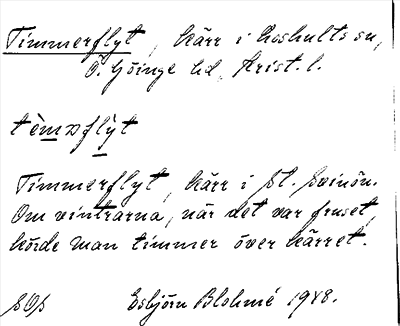 Timmerflyt, kärr i Loshults sn,
Ö. Göinge hd, Krist. l.
tèmərflỳt
Timmerflyt, kärr i St. Svinön.
Om vintrarna, när det var fruset,
körde man timmer över kärret.
SOs Esbjörn Blohmé 1948.